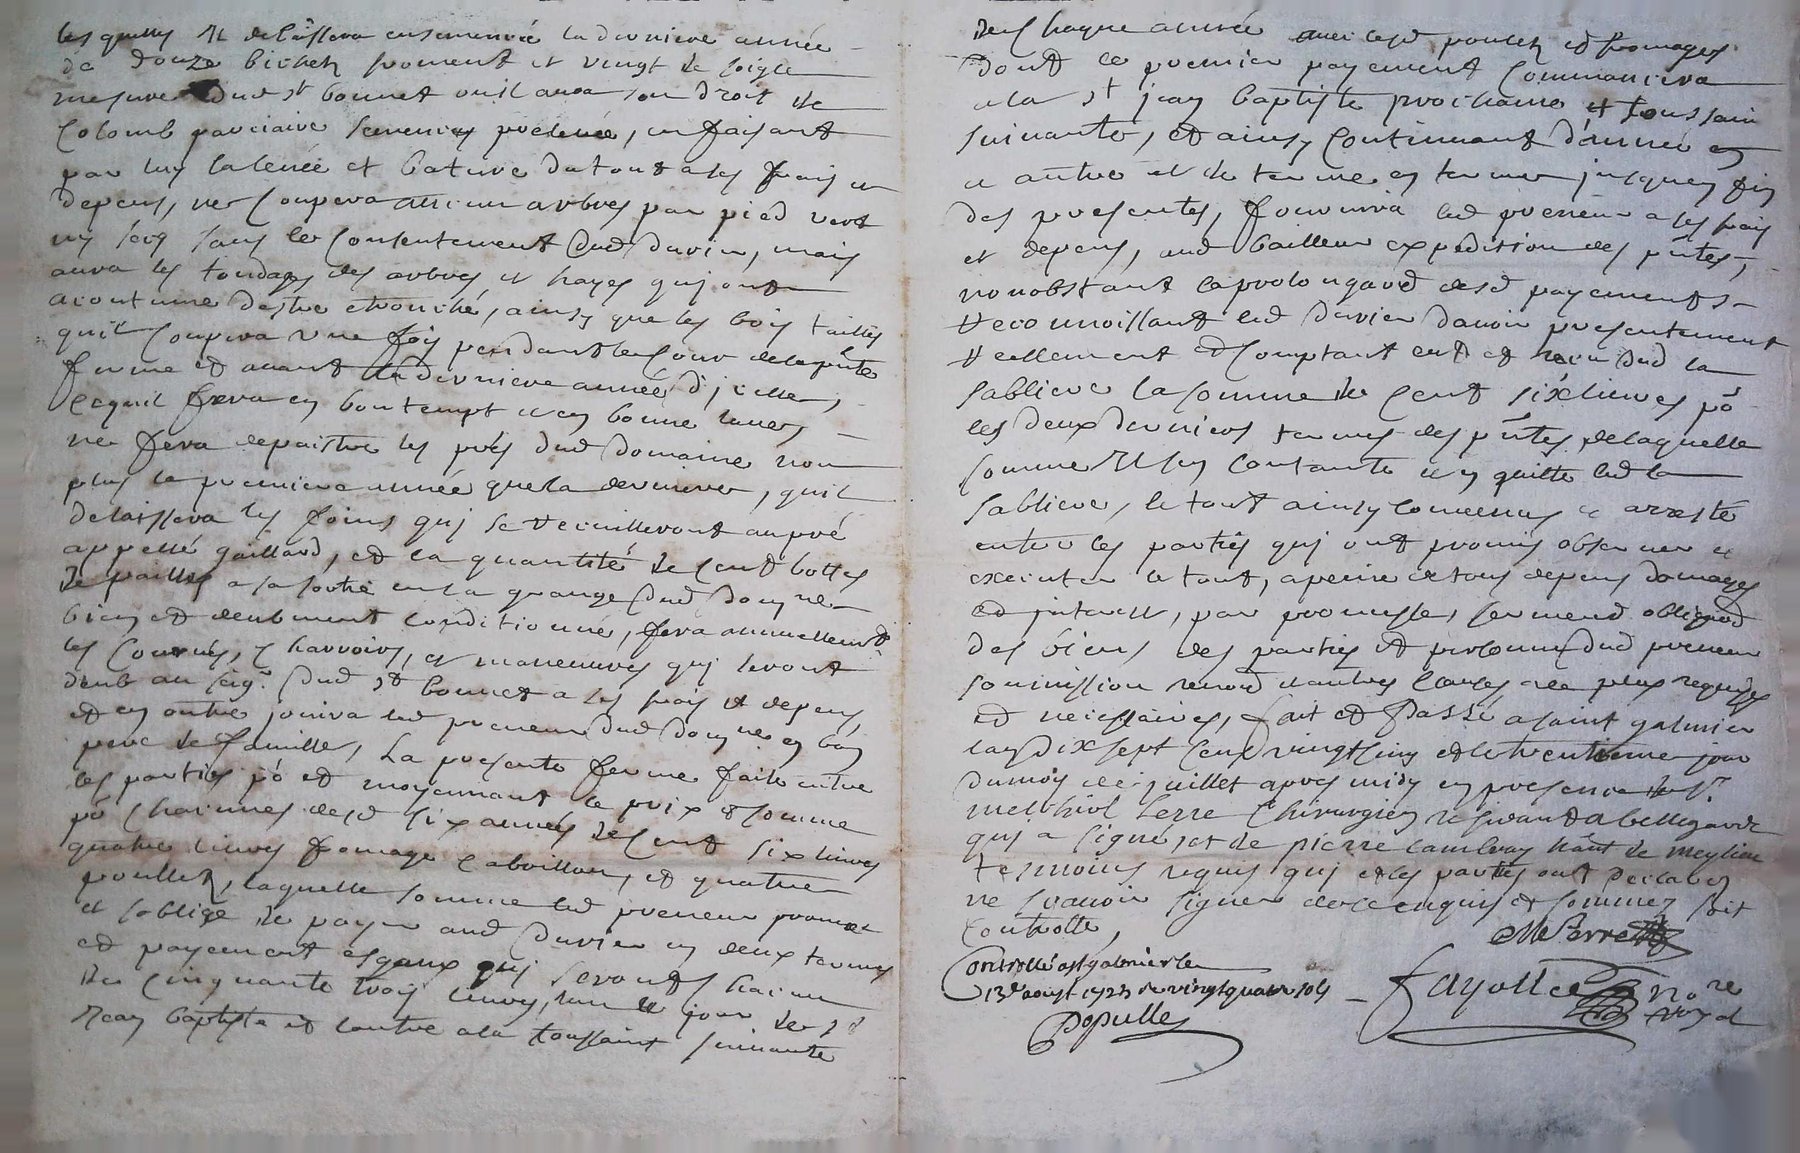 les quelles Il delaissera ensemencé la derniere année
de douze bichetz froment et vingt de seigle
mesure dud st bonnet ou il aura son droit de
Colomb parciaire semence prelevée, en faisant
par luy la levée et bature du tout a ses frais et
depens, ne Coupera aucun arbres par pied vert
ny secq sans le Consentement dud duvier, mais
aura les tondages des arbres, et hayes quj ont
acoutume destre etronché, ainsy que les bois taillis
quil Coupera une fois pendant le Cour de la pnte
ferme et avant la derniere année djcelle,
Cequil fera en bon tempt et en bonne lune,
ne fera depaistre les prés dud domaine non
plus la premiere année que la derniere, quil
delaissera les foins quj se Recuilleront au pré
appellé gaillard, et la quantité de Cent bottes
de pailles a sa sortie en la grange dud domne
bien et deubment Conditionné, fera annuellemt
les Courvés, Charroirs, et maneuvres quj seront
deub au seigr. dud st bonnet a ses frais et depens,
et en outre jouira led preneur dud domne en bon
pere de famille, La presente ferme faite entre
les parties po et moyennant le prix et somme
po Chacunes desd six années de Cent six livres
quatre livres fromage Cabrillon, et quatre
poulletz, laquelle somme led preneur promet
et soblige de payer aud duvier en deux termes
et payement esgaux quj seront Chacun
de Cinquante trois livres, lun le jour de st
Jean baptiste et lautre a la toussaint suivante
de Chaque année avec lesd pouletz et fromages
dont le premier payement Commancera
a la st jean baptiste prochaine et toussain
suivante, et ainsy Continuant dannée en
a autre et de terme en terme jusques fin
des presentes, fournira led preneur a ses frais
et depens, aud bailleur expedition des pntes,
nonobstant la prolongaon desd payements
Reconnoissant led duvier davoir presentement
Reellement et Comptant eut et receu dud la
sabliere la somme de Cent six livres po
les deux derniers termes des pntes, de laquelle
somme Il sen Contante et en quitte led la
sabliere, le tout ainsy Convenus et arresté
entre les parties quj ont promis observer et
executer le tout, a peine de tous depens domages
et jnterest, par promesse, serment obligaon
des biens des parties et personne dud preneur
soumission renond et autres Clauses a ce plus requises
et necessaires, fait et Passé a saint galmier
lan dix sept Cent vingt cinq et le trentieme jour
du mois de juillet apres midy en presence de sr.
melchiol serre Chirurgien residant a bellegarde
quj a signé, et de pierre Cambray hânt de meylieu
temoins requis quj et les parties ont declarés
ne scavoir signer de ce enquis et sommez soit
Controllé,
M Serre
Controllé a st galmier le
13e aoust 1725 r vingt quatre sols
Populle
fayolle nore
royal